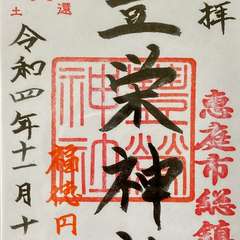 拝
恵庭市総鎮
栄神
豊榮
神社
福徳円
還
土
令和四年十一月十